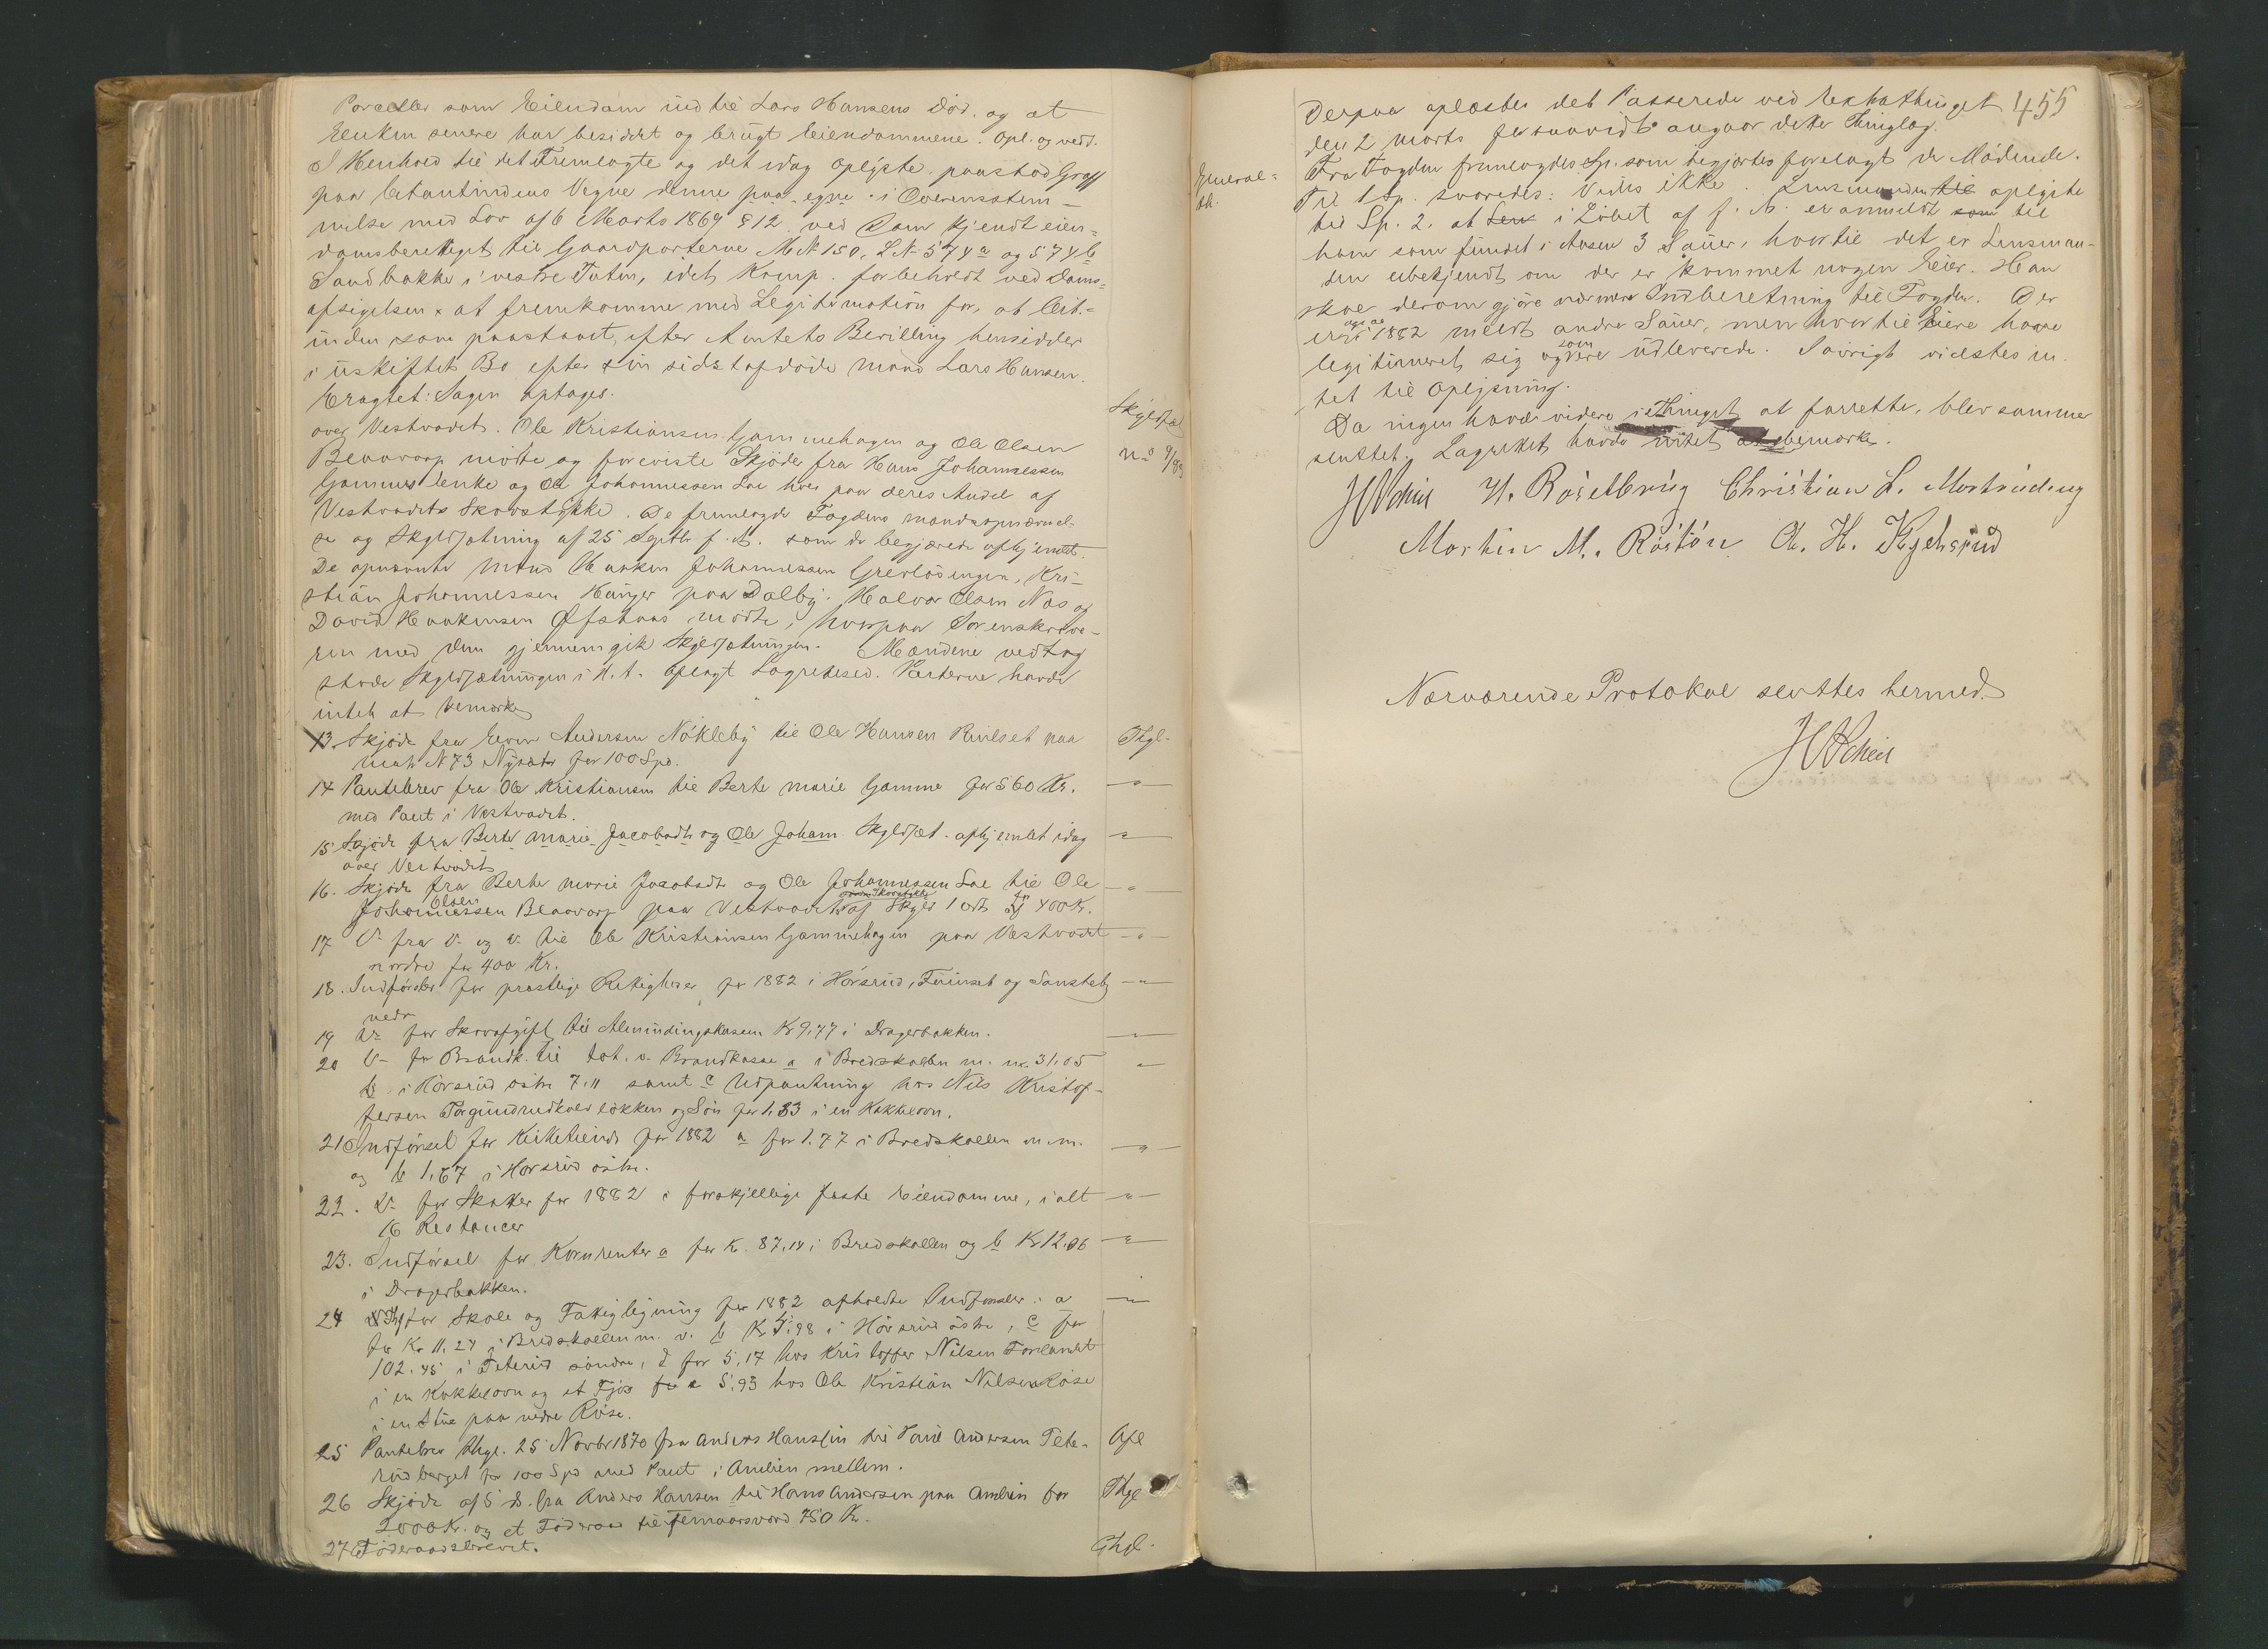 Parceller som Eiendom ind til Lars Hansens Död, og at
Enken senere har besiddet og brugt Eiendommene. Opl. og vedt.
I Henhold til det Fremlagte og det idag oplyste paastod Graff
paa Citantindens Vegne denne paa egne i Overensstem-
melse med Lov af 6 Marts 1869 § 12 ved Dom kjendt eien-
domsberettiget til Gaardparterne M.N. 150, L.N. 574a og 574b
Sandbakke i vestre Toten, idet Komp. forbeholdt ved Doms-
afsigelsen at fremkomme med Legitimation for, at Cit.-
inden som paastaaet, efter Amtets Bevilling hensidder
i uskiftet Bo efter sin sidst afdöde mand Lars Hansen.
Eragtet: Sagen optages.
over Vestvadet. Ole Kristiansen Gammehagen og Ole Olsen
Skyldsæt
Blaavarp mödte og foreviste Skjöder fra Hans Johannessen
no 9/83
Gammeslenke og Ole Johannessen Lae hver paa deres Andel af
Vestvadets Skovstykke. De fremlagde Fogdens mandsopnævnel-
se og Skyldsætning af 25 Septbr f. A. som de begjærede afhjemlet.
De opnævnte Mænd Haaken Johannessen Grevlösengen, Kri-
stian Johannessen Hanger paa Dalby, Halvor Olsen Næs og
David Haakensen Ofstaas mödte, hvorpaa Sorenskrive-
ren med dem gjennemgik Skyldsætningen. Mændene vedtog
stode Skyldsætningen i H. t. aflagt Lagrettesed. Parterne havde
intet at bemærke
13. Skjöde fra Even Andersen Nökleby til Ole Hansen Rinilset paa Thgl.
Matr N 73 Nysæt for 100 Spd.
14 Pantebrev fra Ole Kristiansen til Berte Marie Gamme for 560 Kr. — " —
med Pant i Vestvadet.
15 Skjöde fra Berte Marie Jacobsdtr og Ole Joham. Skyldsæt. afhjemlet idag — " —
over Vestvadet
16. Skjöde fra Berte Marie Jacobsdtr og Ole Johannessen Lae til Ole — " —
Olsen
Johannessen Blaavarp paa Vestvadet af Skyld 1 ort for 400 Kr.
17 D. fra D. og D. til Ole Kristiansen Gammehagen paa Vestvadet — " —
nordre for 400 Kr.
18. Indförsler for præstlige Rettigheder for 1882 i Hörsrud, Finnset og Sansteby — " —
nedr
19 D. for Skovafgift til Almindingskassen Kr 9,77 i Dragerbakken. — " —
20 D. for Brandk. til Tot. v. Brandkasse a i Bredskallen m. m. 31,05 — " —
b i Hörsrud östre 7,11 samt c Udpantning hos Nils Kristof-
fersen Torgundrudkols lökken og Sön for 1,83 i en Kakkelovn.
21 Indförsel for Kirketiende for 1882 a for 1,77 i Bredskallen m. m. — " —
og b 1,67 i Hörsrud östre.
22. D. for Skatter for 1882 i forskjellige faste Eiendomme, i alt — " —
16 Restancer
23. Indförsel for Kornrenter a for Kr. 87,14 i Bredskallen og b Kr 12,06 — " —
i Dragerbakken.
24 for Skole og Fattigligning for 1882 afholdte Indförsler: a — " —
for Kr 11,27 i Bredskallen m. v. b Kr 5,98 i Hörsrud östre, c for
102,45 i Teterud söndre, d for 5,17 hos Kristoffer Nilsen Torlandet
i en Kakkelovn og et Fjös e 5,93 hos Ole Kristian Nilsen Röise
i en Stue paa nedre Röise.
25 Pantebrev thgl. 25 Novbr 1870 fra Anders Hansen til Paul Andersen Tete- Afl
rudberget for 100 Spd med Pant i Amlien mellem.
26 Skjöde af 5 ds. fra Anders Hansen til Hans Andersen paa Amlien for Thgl
2000 Kr. og et Föderaad til femaarsværd 750 Kr.
27 Föderaadsbrevet. Thgl.
455
Derpaa oplæstes det Passerede ved Extrathinget
den 2 Marts for saavidt angaar dette Thinglag.
General=
Fra Fogden fremlagdes Sp. som begjærtes forelagt de Mödende.
Til 1 Sp. svaredes: Vides ikke. Lensmanden til oplyste
til Sp. 2. at i Löbet af f. A. er anmeldt som til
ham som fundet i Aasen 3 Sauer, hvortil det er Lensman-
den ubekjendt om der er kommet nogen Eier. Han
skal derom gjöre nærmere Indberetning til Fogden. Der
er ogsaa i 1882 meldt andre Sauer, men hvortil Eiere have
som
legitimeret sig og ere udleverede. Iövrigt vidstes in-
tet til Oplysning.
Da ingen havde videre i Thinget at forrette, blev samme
sluttet. Lagrettet havde intet at bemærke.
H Schen H. Röiselbrüg Christian L. Mortrudeng
Martin M. Röstön O. H. Kyehsrud
Nærværende Protokol sluttes hermed.
H Schen